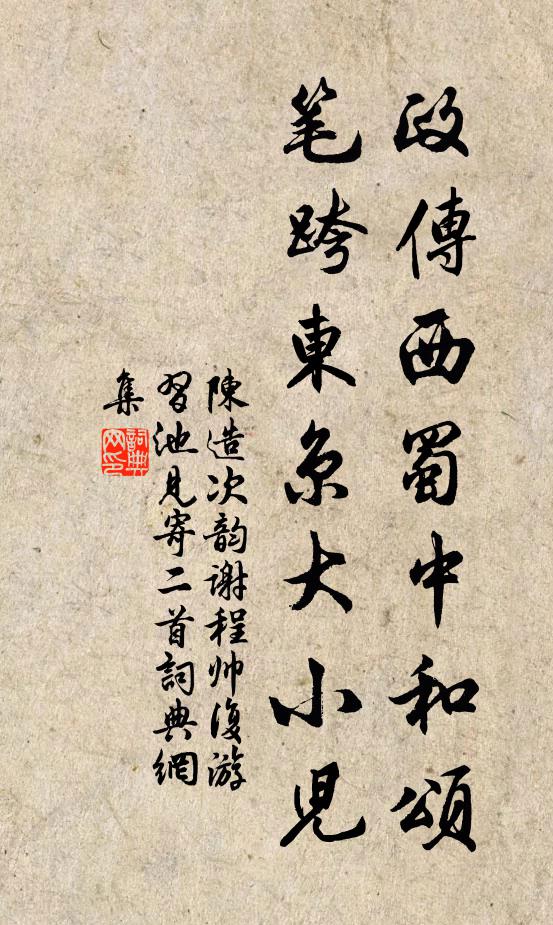 政傳西蜀中和頌
笔跨東京大小兒
陳造次韵謝程帅復游
習池見寄二首詞典網
集
詞典网印